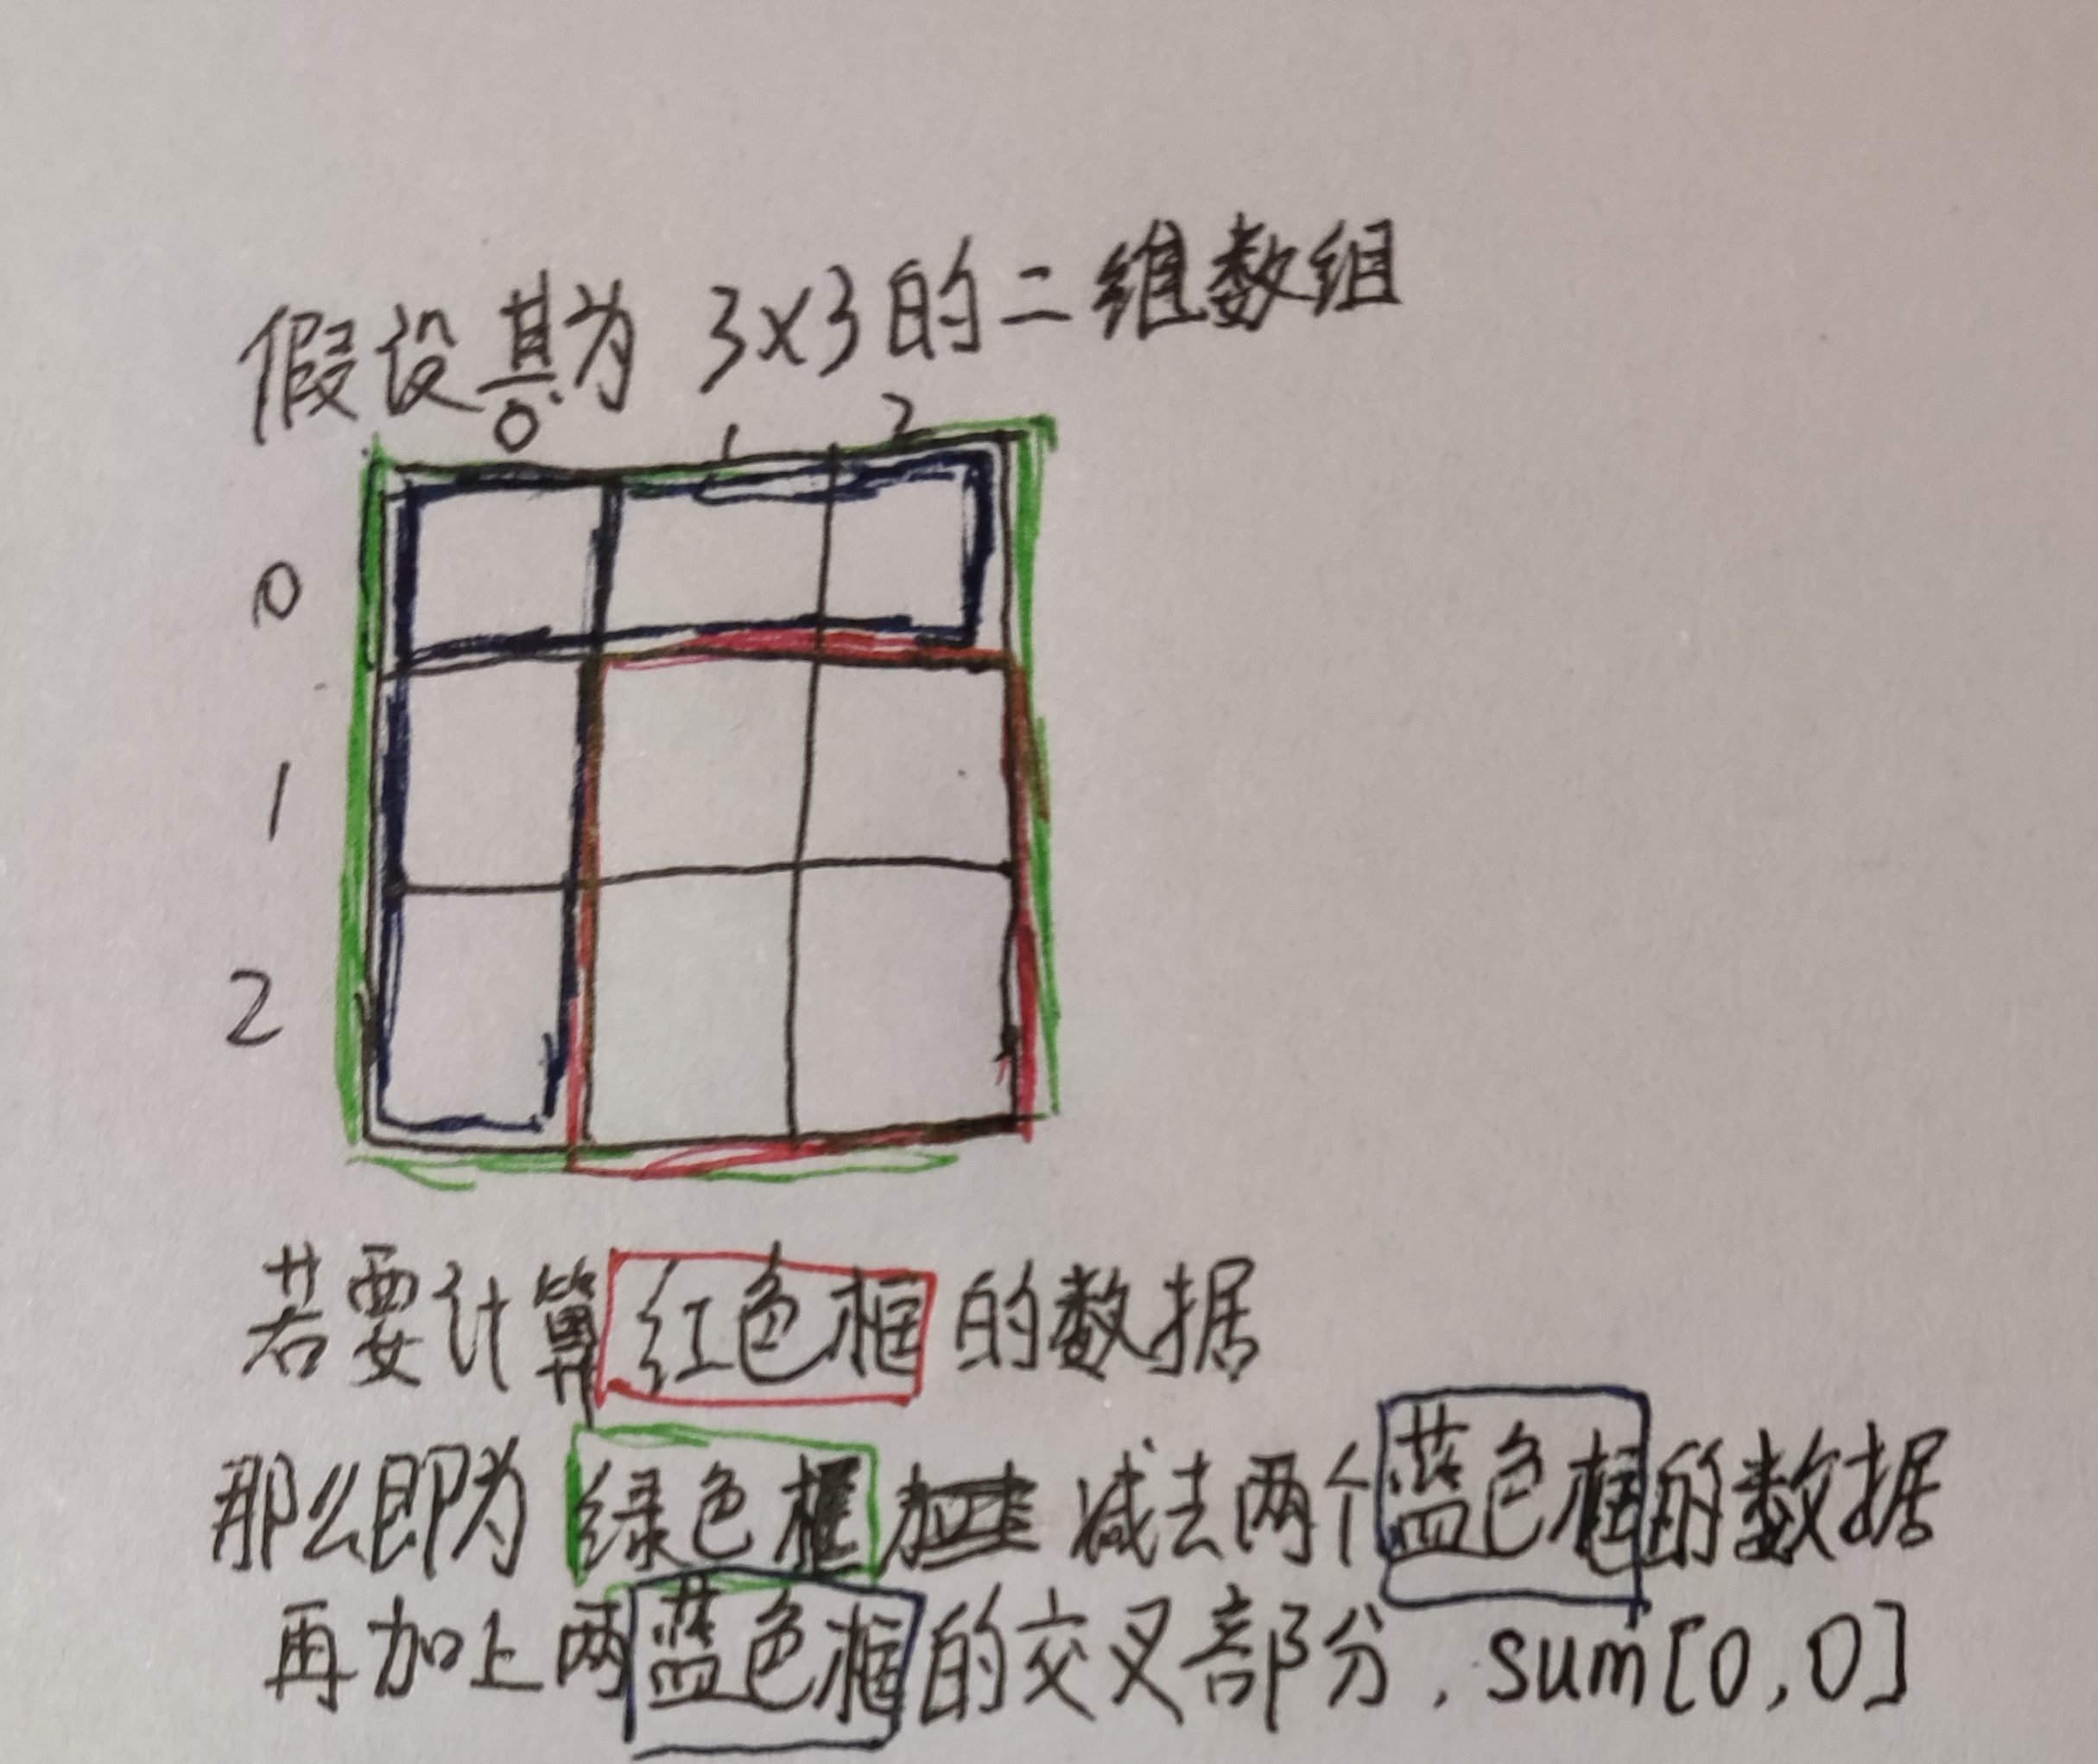 假设其为 3×3的二维数组
0 1 2
0
1
2
若要计算红色框的数据
那么即为绿色框 减去两个蓝色框的数据
再加上两蓝色框的交叉部分,sum[0,0]